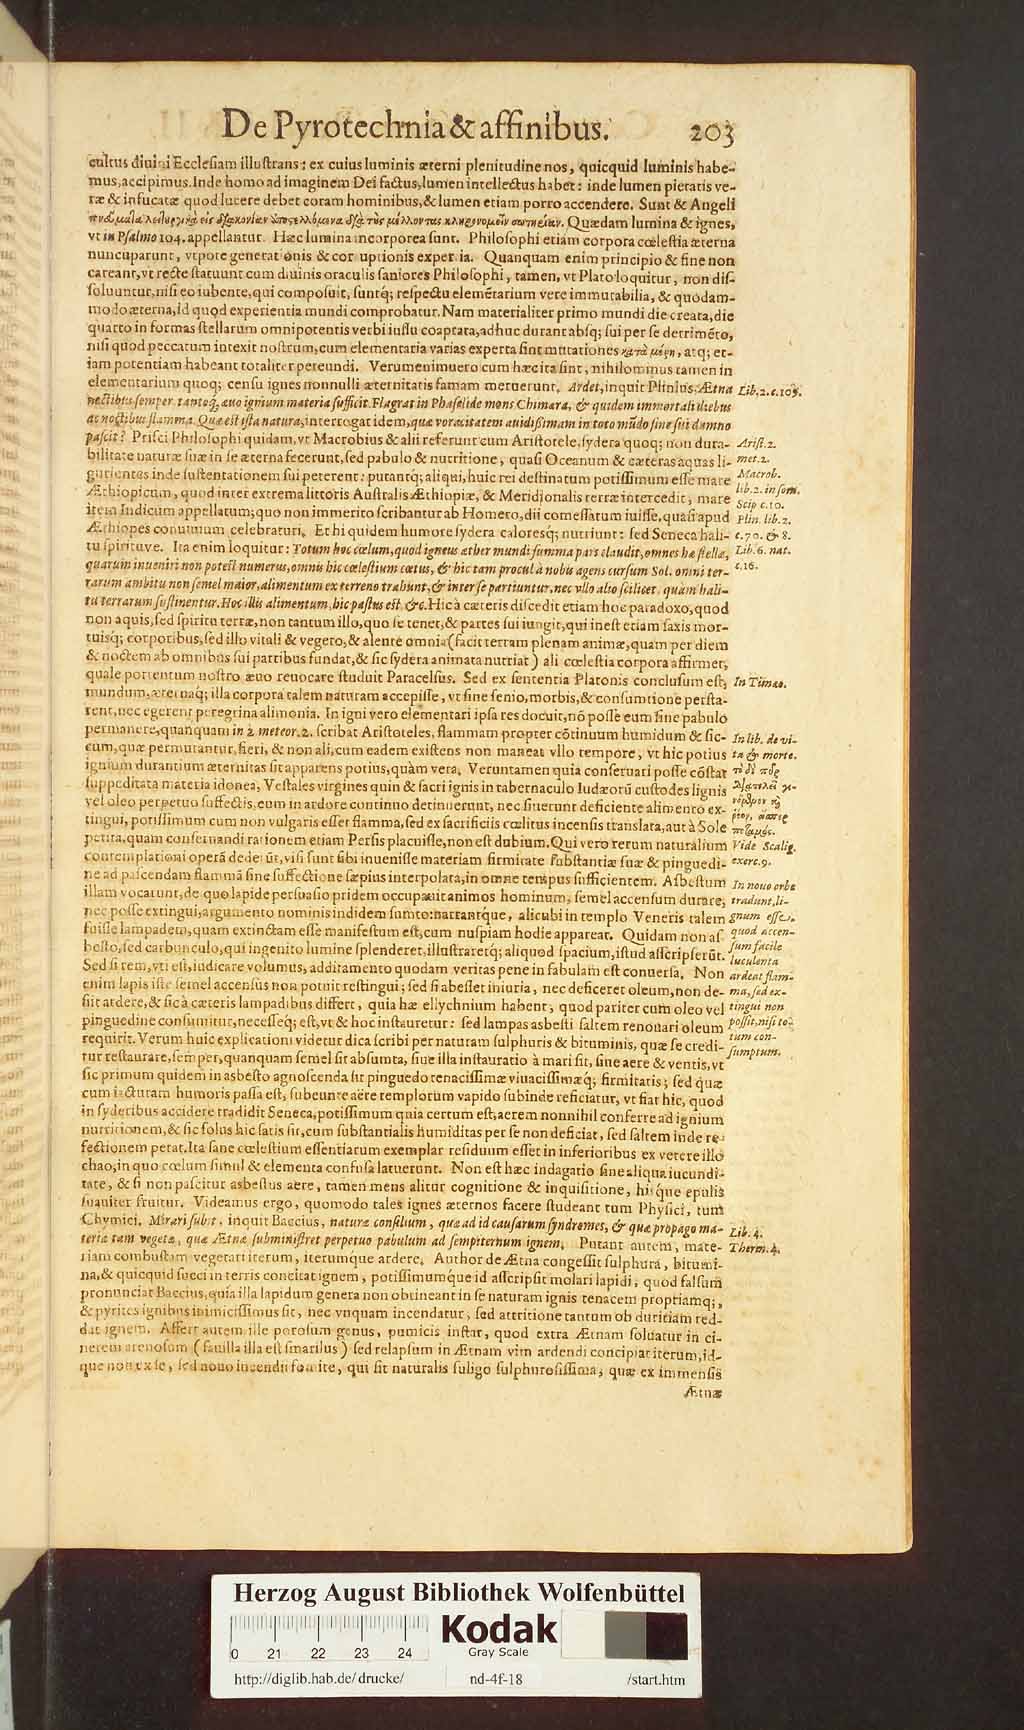 De Pyrotechnia & affinibus. 203
cultus divini Ecclesiam illustrans: ex cuius luminis æterni plenitudine nos, quicquid luminis habe-
mus, accipimus. Inde homo ad imaginem Dei factus, lumen intellectus habet: inde lumen pietatis ve-
ræ & infucatæ quod lucere debet coram hominibus, & lumen etiam porro accendere. Sunt & Angeli
Quædam lumina & ignes,
vt in Psalmo 104. appellantur. Hæc lumina incorporea sunt. Philosophi etiam corpora cœlestia æterna
nuncuparunt, vtpote generationis & corruptionis expertia. Quanquam enim principio & fine non
careant, vt recte statuunt cum divinis oraculis saniores Philosophi, tamen, vt Plato loquitur, non dis-
soluuntur, nisi eo iubente, qui composuit, suntq; respectu elemētarium vere immutabilia, & quodam-
modo æterna, id quod experientia mundi comprobatur. Nam materialiter primo mundi die creata, die
quarto in formas stellarum omnipotentis verbi iussu coaptata, adhuc durant absq; sui per se detrimēto,
nisi quod peccatum intexit nostrum, cum elementaria varias experta sint mutationes κατὰ μέρη, atq; et-
iam potentiam habeant totaliter pereundi. Verumenimuero cum hæc ita sint, nihilominus tamen in
elementarium quoq; censu ignes nonnulli æternitatis famam meruerunt. Ardet, inquit Plinius, Ætna
noctibus semper, tantoq; æuo ignium materia sufficit. Flagrat in Phaselide mons Chimæra, & quidem immortali diebus
ac noctibus flamma. Quæ est ista natura, interrogat idem, quæ voracitatem auidissimam in toto mūdo sine sui damno
pascit? Prisci Philosophi quidam, vt Macrobius & alii referunt cum Aristotele, sydera quoq; non dura-
bilitate naturæ suæ in se æterna fecerunt, sed pabulo & nutritione, quasi Oceanum & cæteras aquas li-
gurientes inde sustentationem sui peterent: putantq; aliqui, huic rei destinatum potissimum esse mare
Æthiopicum, quod inter extrema littoris Australis Æthiopiæ, & Meridionalis terræ intercedit; mare
item Indicum appellatum; quo non immerito scribantur ab Homero, dii comessatum iuisse, quasi apud
Æthiopes conuiuium celebraturi. Et hi quidem humore sydera caloresq; nutriunt: sed Seneca hali-
tu spirituve. Ita enim loquitur: Totum hoc cœlum, quod igneus æther mundi summa pars claudit, omnes hæ stellæ,
quarum inueniri non potest numerus, omnis hic cœlestium cœtus, & hic tam procul à nobis agens cursum Sol. omni ter-
rarum ambitu non semel maior, alimentum ex terreno trahunt, & inter se partiuntur, nec vllo alio scilicet, quàm hali-
tu terrarum sustinentur. Hoc illis alimentum, hic pastus est, &c. Hic à cæteris discedit etiam hoc paradoxo, quod
non aquis, sed spiritu terræ, non tantum illo, quo se tenet, & partes sui iungit, qui inest etiam saxis mor-
tuisq; corporibus, sed illo vitali & vegeto, & alente omnia (facit terram plenam animæ, quam per diem
& noctem ab omnibus sui partibus fundat, & sic sydera animata nutriat) ali cœlestia corpora affirmet,
quale portentum nostro æuo reuocare studuit Paracelsus. Sed ex sententia Platonis conclusum est,
mundum, æternaq; illa corpora talem naturam accepisse, vt sine senio, morbis, & consumtione persta-
rent, nec egerent peregrina alimonia. In igni vero elementari ipsa res docuit, nō posse eum sine pabulo
permanere, quanquam in 2. meteor. 2. scribat Aristoteles, flammam propter cōtinuum humidum & sic-
cum, quæ permutantur, fieri, & non ali, cum eadem existens non maneat vllo tempore, vt hic potius
ignium durantium æternitas sit apparens potius, quàm vera. Veruntamen quia conseruari posse cōstat
suppeditata materia idonea, Vestales virgines quin & sacri ignis in tabernaculo Iudæorū custodes lignis
vel oleo perpetuo suffectis, eum in ardore continuo detinuerunt, nec siuerunt deficiente alimento ex-
tingui, potissimum cum non vulgaris esset flamma, sed ex sacrificiis cœlitus incensis translata, aut à Sole
petita, quam conseruandi rationem etiam Persis placuisse, non est dubium. Qui vero rerum naturalium
contemplationi operā dederūt, visi sunt sibi inuenisse materiam firmitate substantiæ suæ & pinguedi-
ne ad pascendam flammā sine suffectione sæpius interpolata, in omne tempus sufficientem. Asbestum
illam vocarunt, de quo lapide persuasio pridem occupauit animos hominum, semel accensum durare,
nec posse extingui, argumento nominis indidem sumto: narrantque, alicubi in templo Veneris talem
fuisse lampadem, quam extinctam esse manifestum est, cum nuspiam hodie appareat. Quidam non as-
besto, sed carbunculo, qui ingenito lumine splenderet, illustraretq; aliquod spacium, istud asscripserūt.
Sed si rem, vti est, iudicare volumus, additamento quodam veritas pene in fabulam est conuersa. Non
enim lapis iste semel accensus non potuit restingui; sed si abesset iniuria, nec deficeret oleum, non de-
siit ardere, & sic à cæteris lampadibus differt, quia hæ ellychnium habent, quod pariter cum oleo vel
pinguedine consumitur, necesseq; est, vt & hoc instauretur: sed lampas asbesti saltem renouari oleum
requirit. Verum huic explicationi videtur dica scribi per naturam sulphuris & bituminis, quæ se credi-
tur restaurare, semper, quanquam semel sit absumta, siue illa instauratio à mari sit, sine aere & ventis, vt
sic primum quidem in asbesto agnoscenda sit pinguedo tenacissimæ viuacissimæq; firmitatis; sed quæ
cum iacturam humoris passa est, subeunte aëre templorum vapido subinde reficiatur, vt fiat hic, quod
in syderibus accidere tradidit Seneca, potissimum quia certum est, aerem nonnihil conferre ad ignium
nutritionem, & sic solus hic satis sit, cum substantialis humiditas per se non deficiat, sed saltem inde re-
fectionem petat. Ita sane cœlestium essentiarum exemplar residuum esset in inferioribus ex vetere illo
chao, in quo cœlum simul & elementa confusa latuerunt. Non est hæc indagatio sine aliqua iucundi-
tate, & si non pascitur asbestus aere, tamen mens alitur cognitione & inquisitione, hisque epulis
suauiter fruitur. Videamus ergo, quomodo tales ignes æternos facere studeant tum Physici, tum
Chymici. Mirari subit, inquit Baccius, naturæ consilium, quæ ad id causarum syndromes, & quæ propago ma-
teria tam vegeta, quæ Ætnæ subministret perpetuo pabulum ad sempiternum ignem. Putant autem, mate-
riam combustam vegetari iterum, iterumque ardere. Author de Ætna congessit sulphura, bitumi-
na, & quicquid succi in terris concitat ignem, potissimumque id asscripsit molari lapidi, quod falsum
pronunciat Baccius, quia illa lapidum genera non obtineant in se naturam ignis tenacem proptiamq;,
& pyrites ignibus inimicissimus sit, nec vnquam incendatur, sed attritione tantum ob duritiam red-
dat ignem. Affert autem ille porosum genus, pumicis instar, quod extra Ætnam soluatur in ci-
nerem arenosum (fauilla illa est similus) sed relapsum in Ætnam vim ardendi concipiat iterum, id-
que non ex se, sed nouo incendii fomite, qui sit naturalis fuligo sulphurosissima, quæ ex immensis
Ætnæ
Lib. 2. c. 106.
Arist. 2.
met. 2.
Macrob.
lib. 2. in som.
Scip c. 10.
Plin. lib. 2.
c. 70. & 8.
Lib. 6. nat.
c. 16.
In Timæo.
In lib. de vi-
ta & morte.
Vide Scalig.
exerc. 9.
In nouo orbe
tradunt, li-
gnum esse,
quod accen-
sum facile
luculenta
ardeat flam-
ma, sed ex-
tingui non
possit, nisi to-
tum con-
sumptum.
Lib. 4.
Therm. 4.
Herzog August Bibliothek Wolfenbüttel
0 21 22 23 24
Kodak
Gray Scale
http://diglib.hab.de/drucke/ nd-4f-18 /start.htm